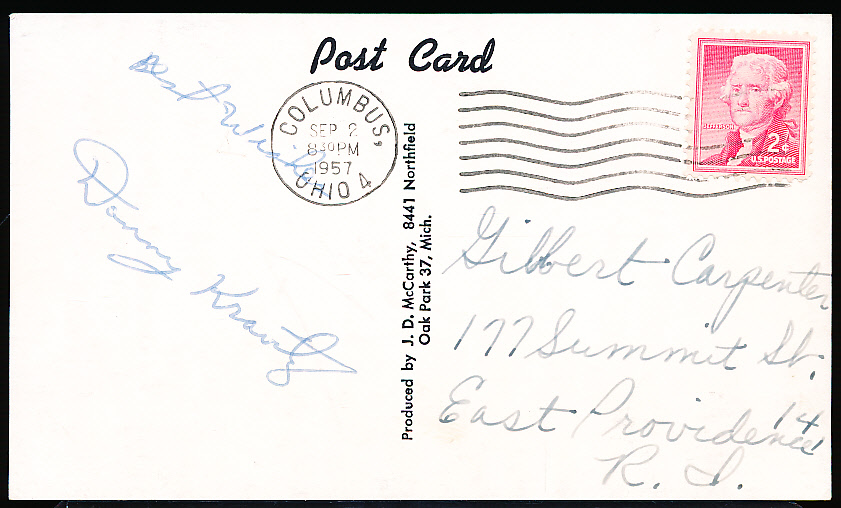 Post Card
Best Wishes
Danny Kravitz
COLUMBUS,
SEP 2
8 30 PM
1957
OHIO 4
JEFFERSON
2¢
U.S. POSTAGE
Produced by J. D. McCarthy, 8441 Northfield
Oak Park 37, Mich.
Gilbert Carpenter
177 Summit St.
East Providence 14
R. I.